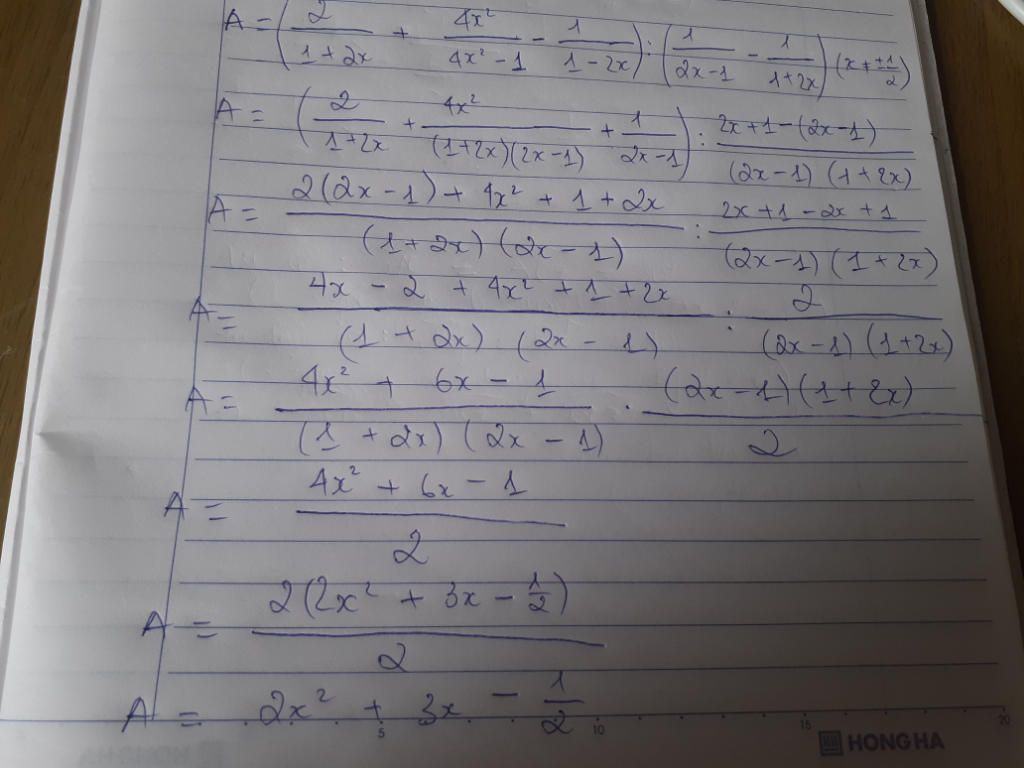 A = (2/(1+2x) + 4x²/(4x²-1) - 1/(1-2x)) : (1/(2x-1) - 1/(1+2x)) (x ≠ ±1/2)
A = (2/(1+2x) + 4x²/((1+2x)(2x-1)) + 1/(2x-1)) : (2x+1-(2x-1))/((2x-1)(1+2x))
A = (2(2x-1) + 4x² + 1 + 2x)/((1+2x)(2x-1)) : (2x+1-2x+1)/((2x-1)(1+2x))
A = (4x - 2 + 4x² + 1 + 2x)/((1+2x)(2x-1)) : 2/((2x-1)(1+2x))
A = (4x² + 6x - 1)/((1+2x)(2x-1)) . ((2x-1)(1+2x))/2
A = (4x² + 6x - 1)/2
A = 2(2x² + 3x - 1/2)/2
A = 2x² + 3x - 1/2
5 10 15 20
HONG HA